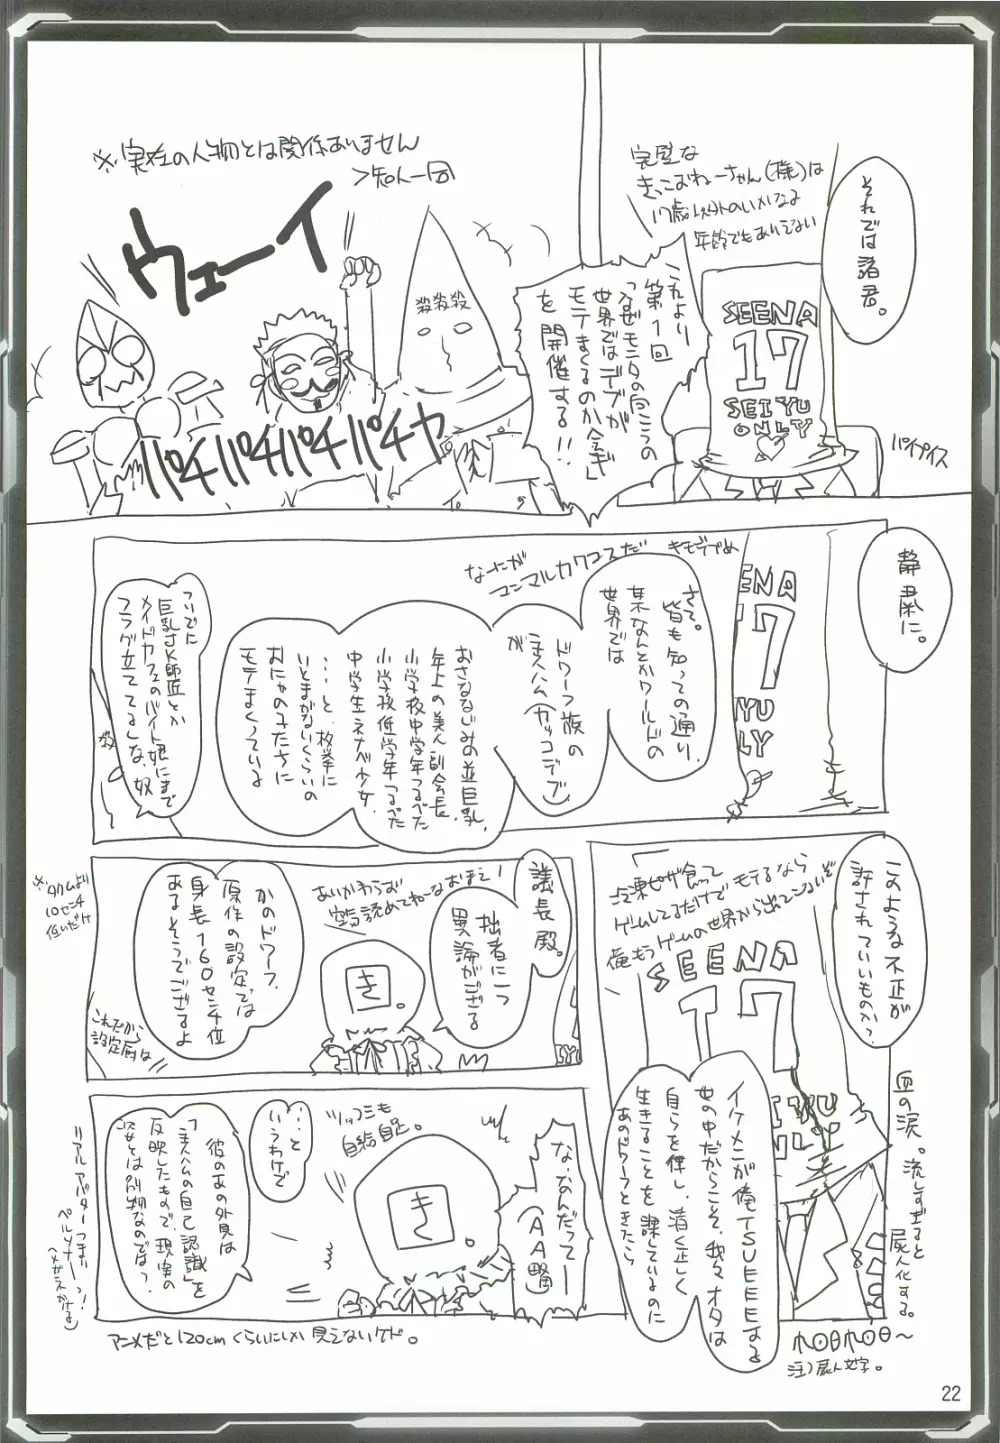 それでは諸君。
完璧な
きっこおねーちゃん(様)は
17歳以外のいかなる
年齢でもありえない
SEENA
17
SEIYU
ONLY
パイプイス
これより
第1回
「なぜモニタの向こうの
世界ではデブが
モテまくるのか会議」
を開催する!!
※実在の人物とは関係ありません
>知人一同
ウェーイ
殺殺殺
パチパチパチパチ
静粛に。
キモデブめ
さて。
皆も知っての通り、
某なんとかワールドの
世界では
なーにが
マンマルカワユスだ
ドワーフ族の
主人公(カッコデブ)
が
おさななじみの並巨乳、
年上の美人副会長、
小学校中学年つるぺた
小学校低学年つるぺた
中学生ネナベ少女、
…と、枚挙に
いとまがないくらいの
おにゃの子たちに
モテまくっている
ついでに
巨乳JK師匠とか
メイドカフェのバイト娘にまで
フラグ立ててるしな、奴
ENA
17
IYU
LY
殺
このような不正が
許されていいものか?
冷凍ピザ食って
ゲームしてるだけでモテるなら
俺もうゲームの世界から出てこないぞ
SEENA
17
イケメンが俺TSUEEEEする
世の中だからこそ、我々オタは
自らを律し、清く正しく
生きることを課しているのに
あのドワーフときたら
血の涙。流しすぎると
屍人化する。
注)屍人文字。
議長殿。
拙者に一つ
異論がござる
あいかわらず
空気読めてねーなおまえ!
き。
かのドワーフ、
原作の設定では
身長160センチ位
あるそうでござるよ
※タクムより
10センチ
低いだけ
これだから
設定厨は
な、なんだってー
(AA略)
ツッコミも
自給自足。
き。
…と
いうわけで
彼のあの外見は
「主人公の自己認識」を
反映したもので、現実の
彼とは別物なのでは?
リアルアバターつまり
ペルソナーっ!
(メガネかける)
アニメだと120cmくらいにしか見えないケド。
22